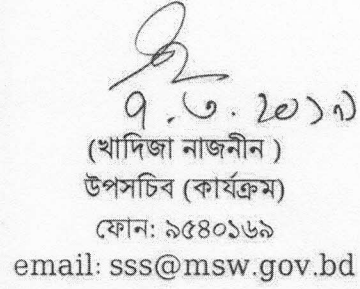 ৭.৩.২০১৯
(খাদিজা নাজনীন )
উপসচিব (কার্যক্রম)
ফোন: ৯৫৪০১৬৯
email: sss@msw.gov.bd